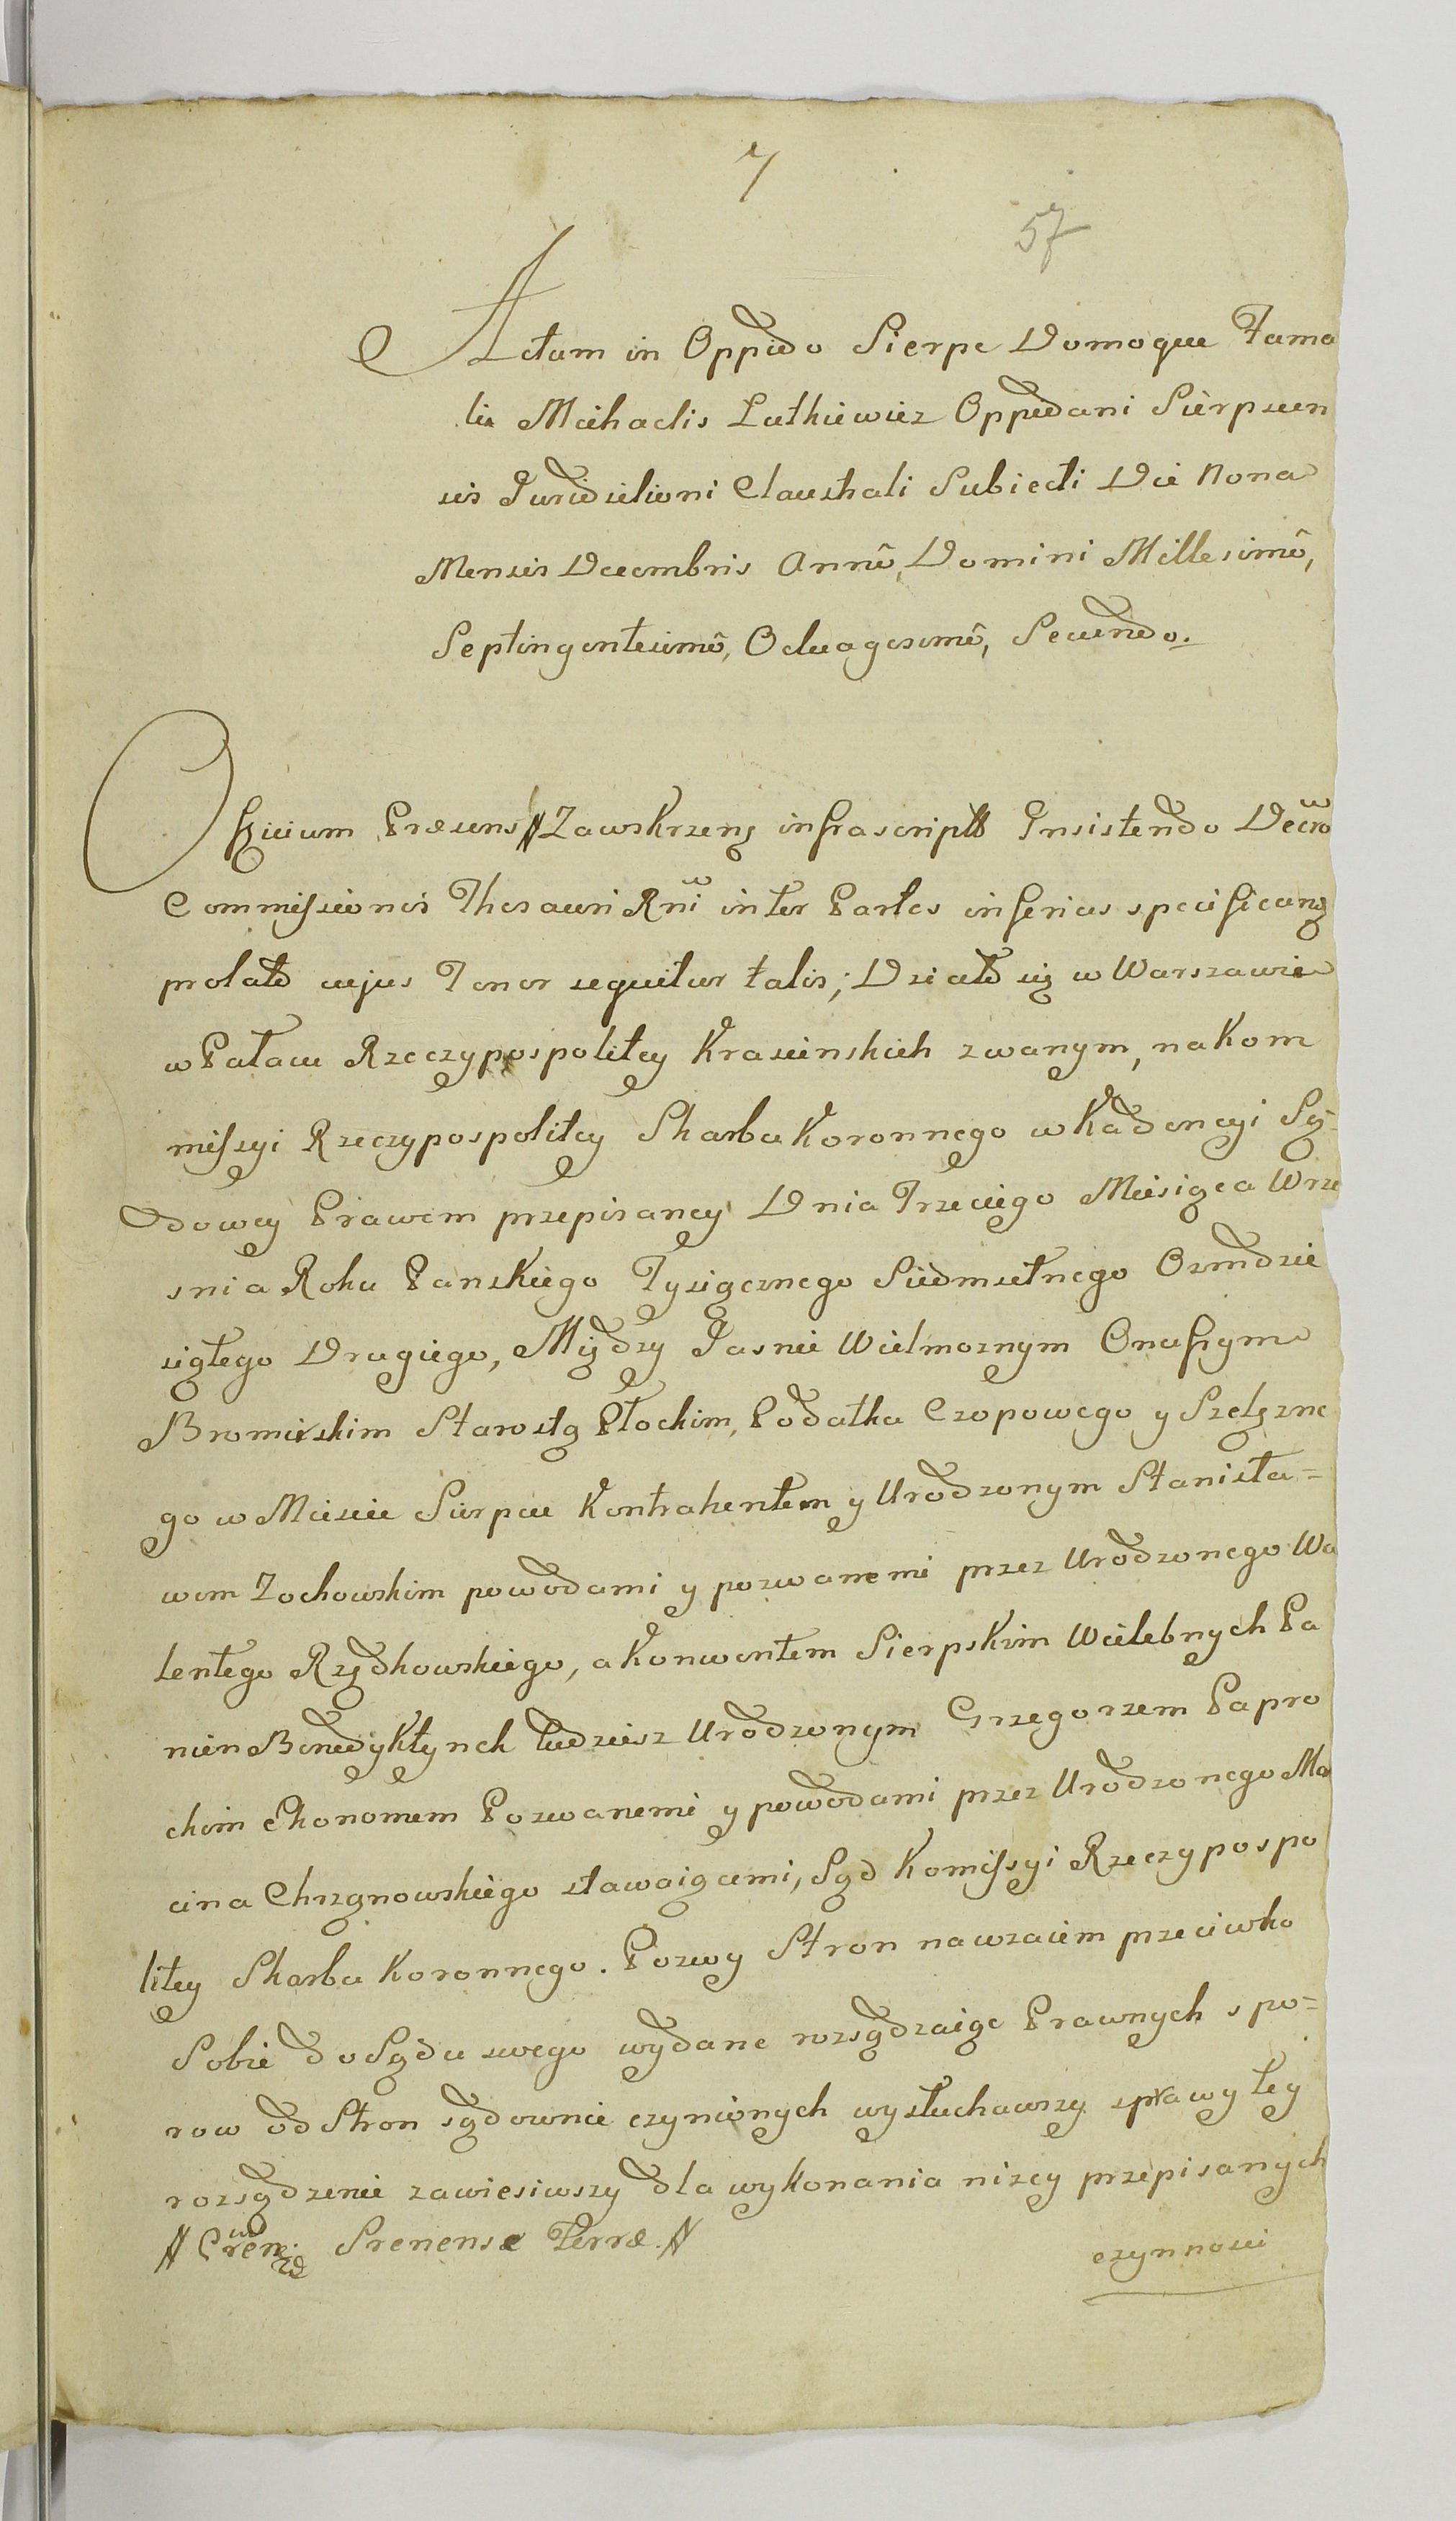 7
57
Actum in Oppido Sierpc Domoque Fama
tis Michaelis Lutkiewicz Oppidani Sierpcen
sis Jurisdictioni Claustrali Subiecti Die Nona
Mensis Decembris Annô, Domini Millesimô,
Septingentesimô, Octuagesimô, Secundo.
Officium Præsens # Zawskrzeng infrascriptt Insistendo Decro
Commissionis Thesauri Rni inter Partes inferius specificang
prolatt cujus Tenor sequitur talis; Działo się w Warszawie
w Pałacu Rzeczypospolitey Krasinskich zwanym, na Kom
missyi Rzeczypospolitey Skarbu Koronnego w Kadencyi Są-
dowey Prawem przepisaney Dnia Trzeciego Miesiąca Wrze
snia Roku Panskiego Tysiącznego Siedmsetnego Osmdzie
siątego Drugiego, Między Jasnie Wielmoznym Onufrym
Bromirskim Starostą Płockim, Podatku Czopowego y Szelęzne
go w Miescie Sierpcu Kontrahentem y Urodzonym Stanisła=
wem Zochowskim powodami y pozwanemi przez Urodzonego Wa
lentego Rzydkowskiego, a Konwentem Sierpskim Wielebnych Pa
nien Benedyktynek tudziesz Urodzonym Grzegorzem Papro
ckim Ekonomem Pozwanemi y powodami przez Urodzonego Ma
cina Chrzanowskiego stawaiącemi, Sąd Komissyi Rzeczypospo
litey Skarbu Koronnego. Pozwy Stron nawzaiem przeciwko
Sobie do Sądu swego wydane rozsądzaiąc Prawnych spo=
row od Stron sądownie czynionych wysłuchawszy sprawy tey
rozsądzenie zawiesiwszy dla wykonania nizey przepisanych
# Srenense Terræ #
czynnosci